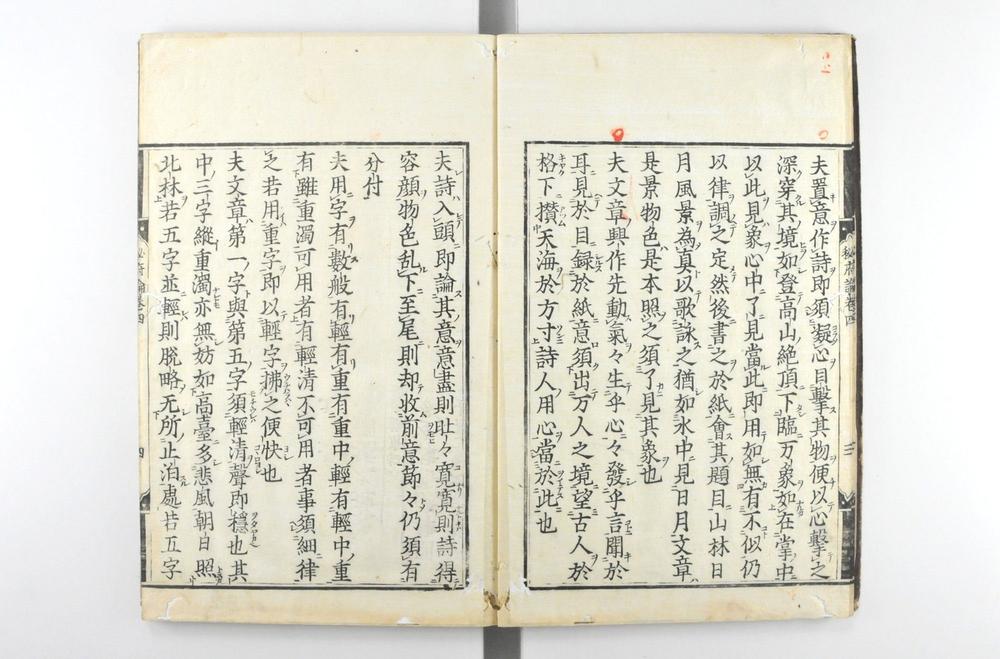 夫置意作詩即須凝心目擊其物便以心擊之
深穿其境如登高山絶頂下臨万象如在掌中
以此見象心中了見當此即用如無有不似仍
以律調之定然後書之於紙會其題目山林日
月風景為真以歌詠之猶如水中見日月文章
是景物色是本照之須了見其象也
夫文章興作先動氣々生乎心々發乎言聞於
耳見於目録於紙意須出万人之境望古人於
格下攅天海於方寸詩人用心當於此也
夫詩入頭即論其意意盡則肚々寛寛則詩得
容顔物色乱下至尾則却收前意節々仍須有
分付
夫用字有數般有輕有重有重中輕有輕中重
有雖重濁可用者有輕清不可用者事須細律
之若用重字即以輕字拂之便快也
夫文章第一字與第五字須輕清聲即穩也其
中三字縱重濁亦無妨如高臺多悲風朝日照
北林若五字並輕則脱略无所止泊處若五字